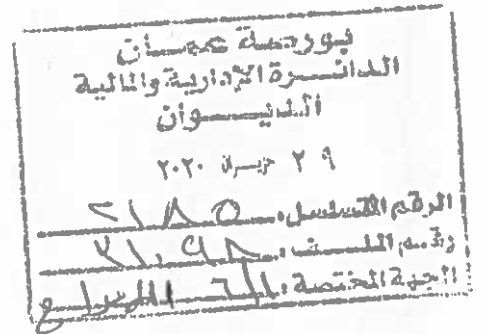 بورصة عمان
الدائرة الإدارية والمالية
الديوان
٢٩ حزيران ٢٠٢٠
الرقم المتسلسل: ٢١٨٥
رقم الملف: ٢١٠٩٨
الجهة المختصة: